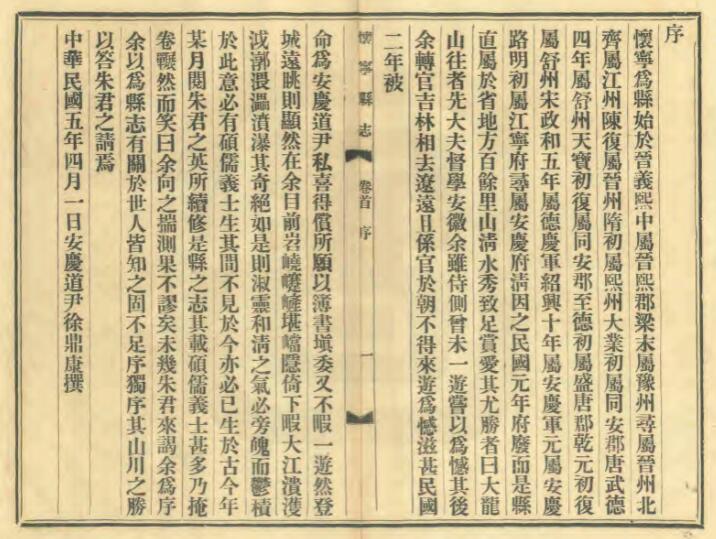 序
懷寧爲縣始於晉義熙中屬晉熙郡梁末屬豫州尋屬晉州北
齊屬江州陳復屬晉州隋初屬熙州大業初屬同安郡唐武德
四年屬舒州天寶初復屬同安郡至德初屬盛唐郡乾元初復
屬舒州宋政和五年屬德慶軍紹興十年屬安慶軍元屬安慶
路明初屬江寧府尋屬安慶府淸因之民國元年府廢而是縣
直屬於省地方百餘里山淸水秀致足賞愛其尤勝者曰大龍
山往者先大夫督學安徽余雖侍側曾未一遊嘗以爲憾其後
余轉官吉林相去遼遠且係官於朝不得來遊爲憾滋甚民國
二年被
懷寧縣志
卷首
序
一
命爲安慶道尹私喜得償所願以簿書塡委又不暇一遊然登
城遠眺則顯然在余目前岩嶢㠥嵼堪㟅隱倚下暇大江潰濩
泧漷濊㵽濆瀑其奇絕如是則淑靈和淸之气必旁魄而鬱積
於此意必有碩儒義士生其間不見於今亦必已生於古今年
某月閱朱君之英所續修是縣之志其載碩儒義士甚多乃掩
卷囅然而笑曰余向之揣測果不謬矣未幾朱君來謁余爲序
余以爲縣志有關於世人皆知之固不足序獨序其山川之勝
以答朱君之請焉
中華民國五年四月一日安慶道尹徐鼎康撰